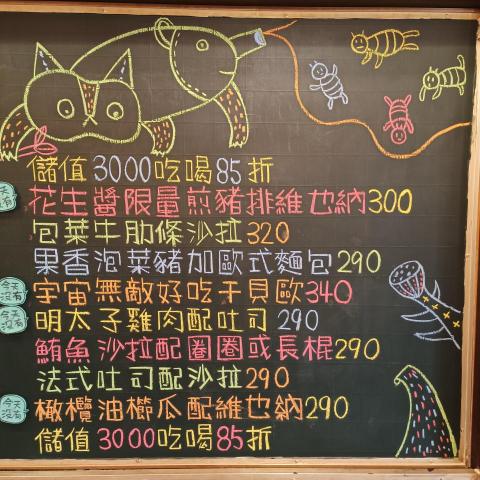 儲值3000吃喝85折
天 沒有
花生醬限量煎豬排維也納300
包葉牛肋條沙拉320
果香泡菜豬加歐式麵包290
今天沒有
宇宙無敵好吃干貝歐340
今天沒有
明太子雞肉配吐司290
鮪魚沙拉配圈圈或長棍290
法式吐司配沙拉290
今天沒有
橄欖油櫛瓜配維也納290
儲值3000吃喝85折